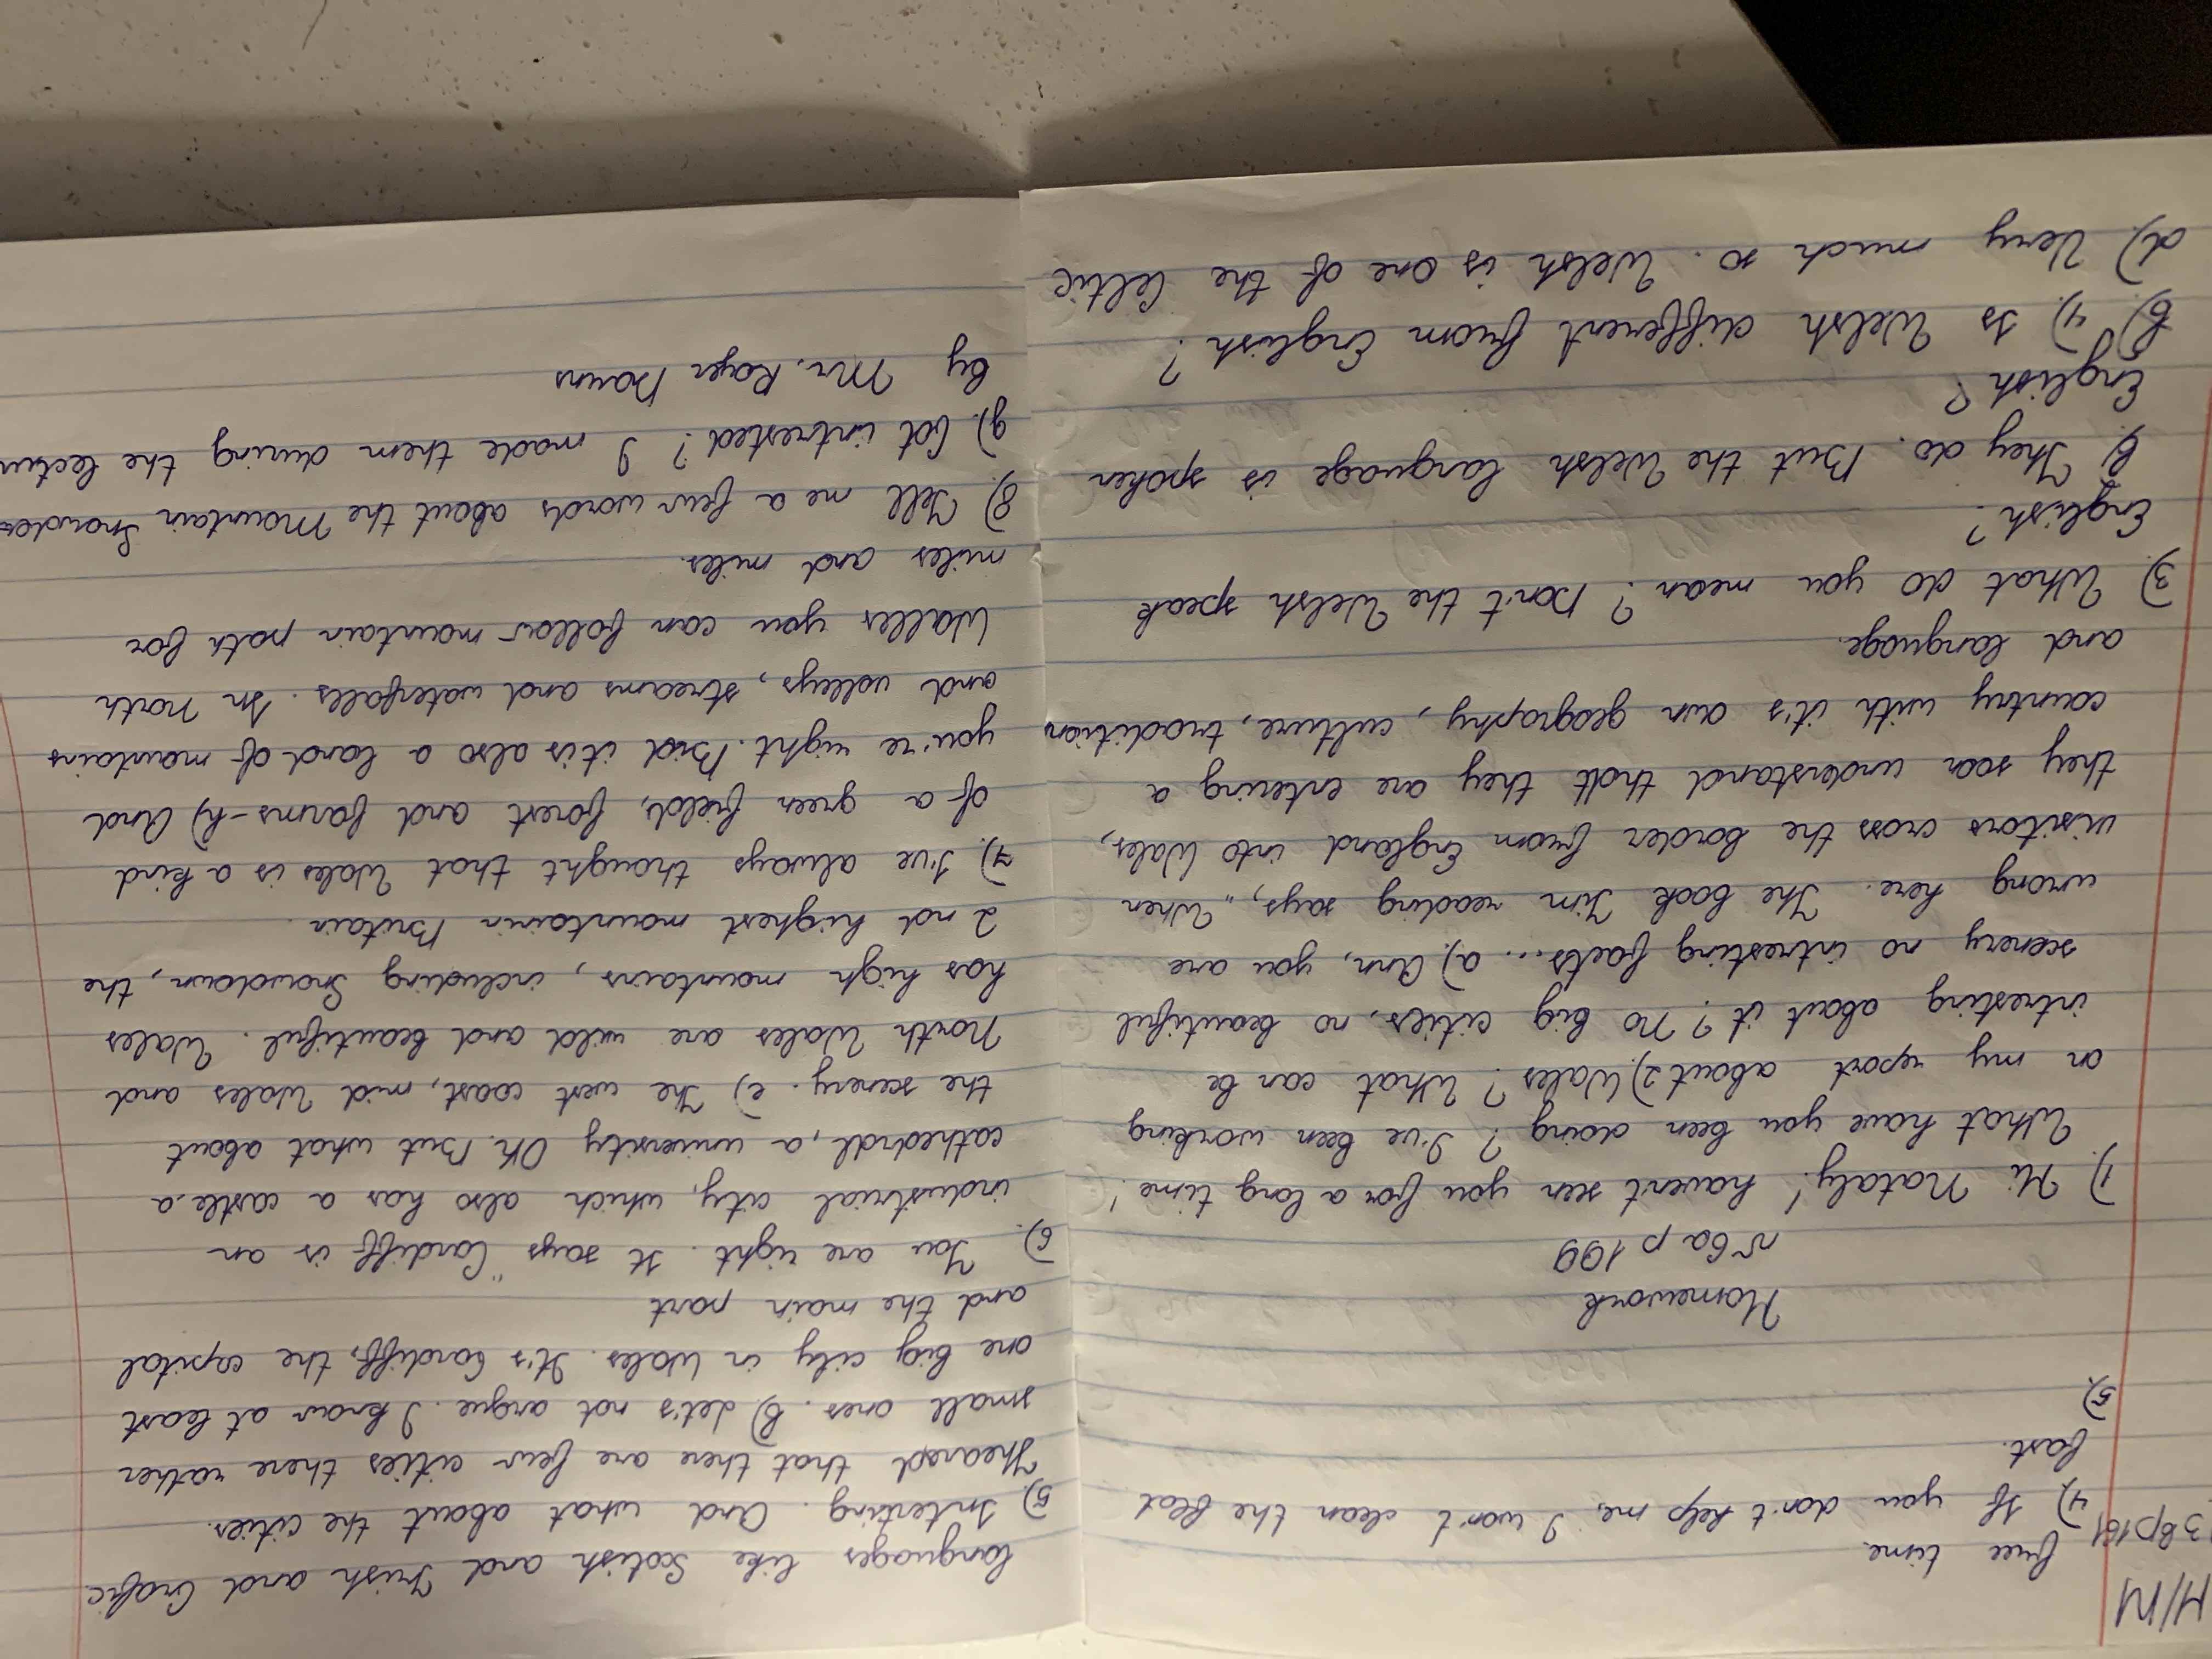 H/M
3 b p 161
free time.
4). If you don't help me, I won't clean the flat
fast.
5).
Homework
№ 6a p 199
1). Hi Nataly! haven't seen you for a long time!
What have you been doing? I've been working
on my report about 2) Wales? What can be
intresting about it? No big cities, no beautiful
scenery no intresting facts... a) Ann, you are
wrong here. The book I'im reading says, "When
visitors cross the border from England into Wales,
they soon understand thatt they are entering a
country with it's own geography, culture, tradition
and language.
3) What do you mean? Don't the Welsh speak
English?
g). They do. But the Welsh language is spoken
English?
f). 4). Is Welsh different from English?
d). Very much so. Welsh is one of the Celtic
languages like Scotish and Irish and Grafic.
5) Interting. And what about the cities.
I heared that there are few cities there rather
small ones. b). Let's not argue. I know at least
one big city in Wales. It's Cardiff, the capital
and the main port
6). You are right. It says "Cardiff is an
industrial city, which also has a castle, a
cathedral, a university OK. But what about
the scenery. e) The west coast, mid Wales and
North Wales are wild and beautiful. Wales
has high mountains, including Snowdown, the
2nd highest mountain in Britain.
7). I've always thought that Wales is a kind
of a green field, forest and farms - h) And
you're right. Bid it is also a land of mountains
and valleys, streams and waterfalls. In North
Walles you can follow mountain path for
miles and miles.
8). Tell me a few words about the Mountain Snowdon
9). Got intrested? I made them during the lectur
by Mr. Roger Bowns